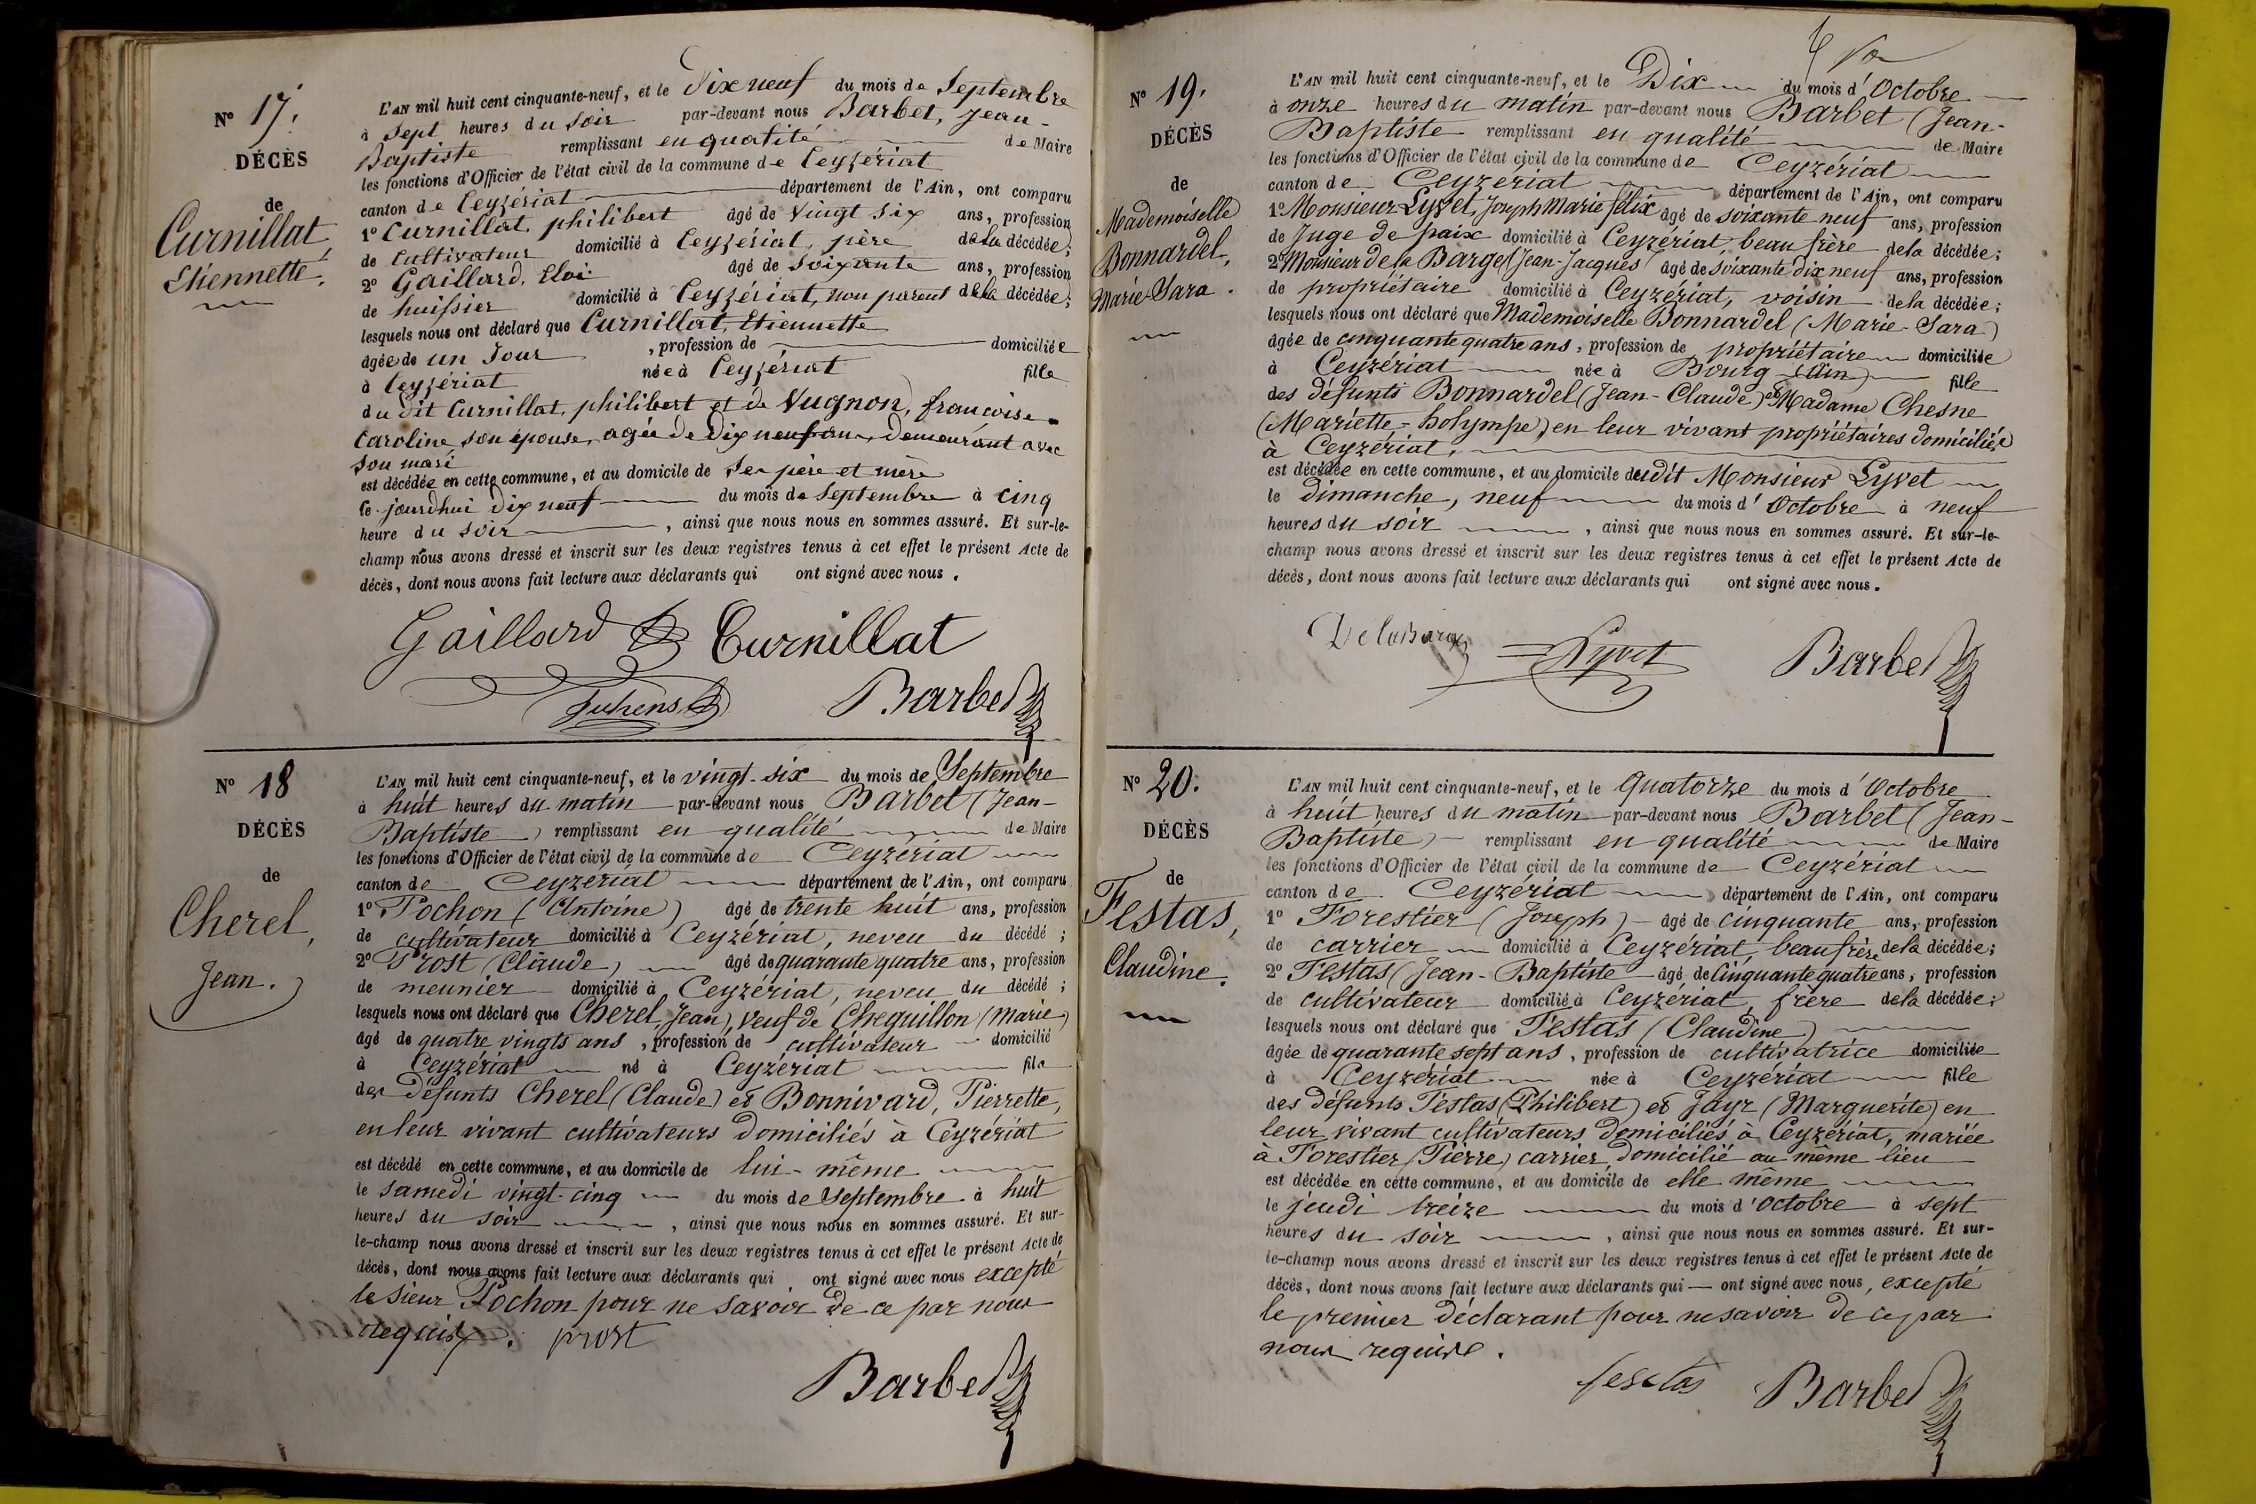 N° 17.
DÉCÈS
de
Curnillat,
Etiennette.
L'AN mil huit cent cinquante-neuf, et le Dix neuf du mois de Septembre
à sept heures du soir par-devant nous Barbet, Jean-
Baptiste remplissant en qualité de Maire
les fonctions d'Officier de l'état civil de la commune de Ceyzériat
canton de Ceyzériat département de l'Ain, ont comparu
1° Curnillat, philibert âgé de Vingt six ans, profession
de Cultivateur domicilié à Ceyzériat, père de la décédée;
2° Gaillard, Eloi âgé de Soixante ans, profession
de huissier domicilié à Ceyzériat, non parent de la décédée;
lesquels nous ont déclaré que Curnillat, Etiennette
âgée de un Jour, profession de domiciliée
à Ceyzériat née à Ceyzériat fille
du dit Curnillat, philibert et de Vugnon, françoise
Caroline, son épouse, agée de Dix neuf ans, demeurant avec
son mari
est décédée en cette commune, et au domicile de Ses père et mère
le jourdhui dix neuf du mois de Septembre à cinq
heure du soir, ainsi que nous nous en sommes assuré. Et sur-le-
champ nous avons dressé et inscrit sur les deux registres tenus à cet effet le présent Acte de
décès, dont nous avons fait lecture aux déclarants qui ont signé avec nous.
Gaillard Curnillat
Barbet
N° 18
DÉCÈS
de
Cherel,
Jean.
L'AN mil huit cent cinquante-neuf, et le vingt-six du mois de Septembre
à huit heures du matin par-devant nous Barbet (Jean-
Baptiste) remplissant en qualité de Maire
les fonctions d'Officier de l'état civil de la commune de Ceyzériat
canton de Ceyzériat département de l'Ain, ont comparu
1° Pochon (Antoine) âgé de trente huit ans, profession
de cultivateur domicilié à Ceyzériat, neveu du décédé;
2° Prost (Claude) âgé de quarante quatre ans, profession
de meunier domicilié à Ceyzériat, neveu du décédé;
lesquels nous ont déclaré que Cherel, Jean), veuf de Cheguillon (Marie)
âgé de quatre vingts ans, profession de cultivateur domicilié
à Ceyzériat né à Ceyzériat fils
des défunts Cherel (Claude) et Bonnivard, Pierrette,
en leur vivant cultivateurs domiciliés à Ceyzériat
est décédé en cette commune, et au domicile de lui-même
le samedi vingt-cinq du mois de Septembre à huit
heures du soir, ainsi que nous nous en sommes assuré. Et sur-
le-champ nous avons dressé et inscrit sur les deux registres tenus à cet effet le présent Acte de
décès, dont nous avons fait lecture aux déclarants qui ont signé avec nous excepté
le sieur Pochon pour ne savoir de ce par nous
requis. prost
Barbet
N° 19.
DÉCÈS
de
Mademoiselle
Bonnardel,
Marie-Sara.
L'AN mil huit cent cinquante-neuf, et le Dix du mois d'Octobre
à onze heures du matin par-devant nous Barbet (Jean-
Baptiste remplissant en qualité de Maire
les fonctions d'Officier de l'état civil de la commune de Ceyzériat
canton de Ceyzériat département de l'Ain, ont comparu
1° Monsieur Lyvet, Joseph Marie félix âgé de soixante neuf ans, profession
de Juge de paix domicilié à Ceyzériat, beau frère de la décédée;
2° Monsieur de la Barge (Jean-Jacques âgé de soixante dix neuf ans, profession
de propriétaire domicilié à Ceyzériat, voisin de la décédée;
lesquels nous ont déclaré que Mademoiselle Bonnardel (Marie-Sara)
âgée de cinquante quatre ans, profession de propriétaire domiciliée
à Ceyzériat née à Bourg (Ain) fille
des défunts Bonnardel (Jean-Claude) et Madame Chesne
(Mariette-holympe) en leur vivant propriétaires domiciliés
à Ceyzériat,
est décédée en cette commune, et au domicile dudit Monsieur Lyvet
le dimanche, neuf du mois d'Octobre à neuf
heures du soir, ainsi que nous nous en sommes assuré. Et sur-le-
champ nous avons dressé et inscrit sur les deux registres tenus à cet effet le présent Acte de
décès, dont nous avons fait lecture aux déclarants qui ont signé avec nous.
DelaBarge Lyvet Barbet
N° 20.
DÉCÈS
de
Festas,
Claudine.
L'AN mil huit cent cinquante-neuf, et le Quatorze du mois d'Octobre
à huit heures du matin par-devant nous Barbet (Jean-
Baptiste) remplissant en qualité de Maire
les fonctions d'Officier de l'état civil de la commune de Ceyzériat
canton de Ceyzériat département de l'Ain, ont comparu
1° Forestier (Joseph) âgé de cinquante ans, profession
de carrier domicilié à Ceyzériat, beau frère de la décédée;
2° Festas (Jean-Baptiste âgé de Cinquante quatre ans, profession
de cultivateur domicilié à Ceyzériat, frère de la décédée;
lesquels nous ont déclaré que Festas (Claudine)
âgée de quarante sept ans, profession de cultivatrice domiciliée
à Ceyzériat née à Ceyzériat fille
des défunts Festas (Philibert) et Jayr (Marguerite) en
leur vivant cultivateurs domiciliés à Ceyzériat, mariée
à Forestier (Pierre) carrier domicilié au même lieu
est décédée en cette commune, et au domicile de elle même
le jeudi treize du mois d'Octobre à sept
heures du soir, ainsi que nous nous en sommes assuré. Et sur-
le-champ nous avons dressé et inscrit sur les deux registres tenus à cet effet le présent Acte de
décès, dont nous avons fait lecture aux déclarants qui ont signé avec nous, excepté
le premier déclarant pour ne savoir de ce par
nous requise.
festas Barbet